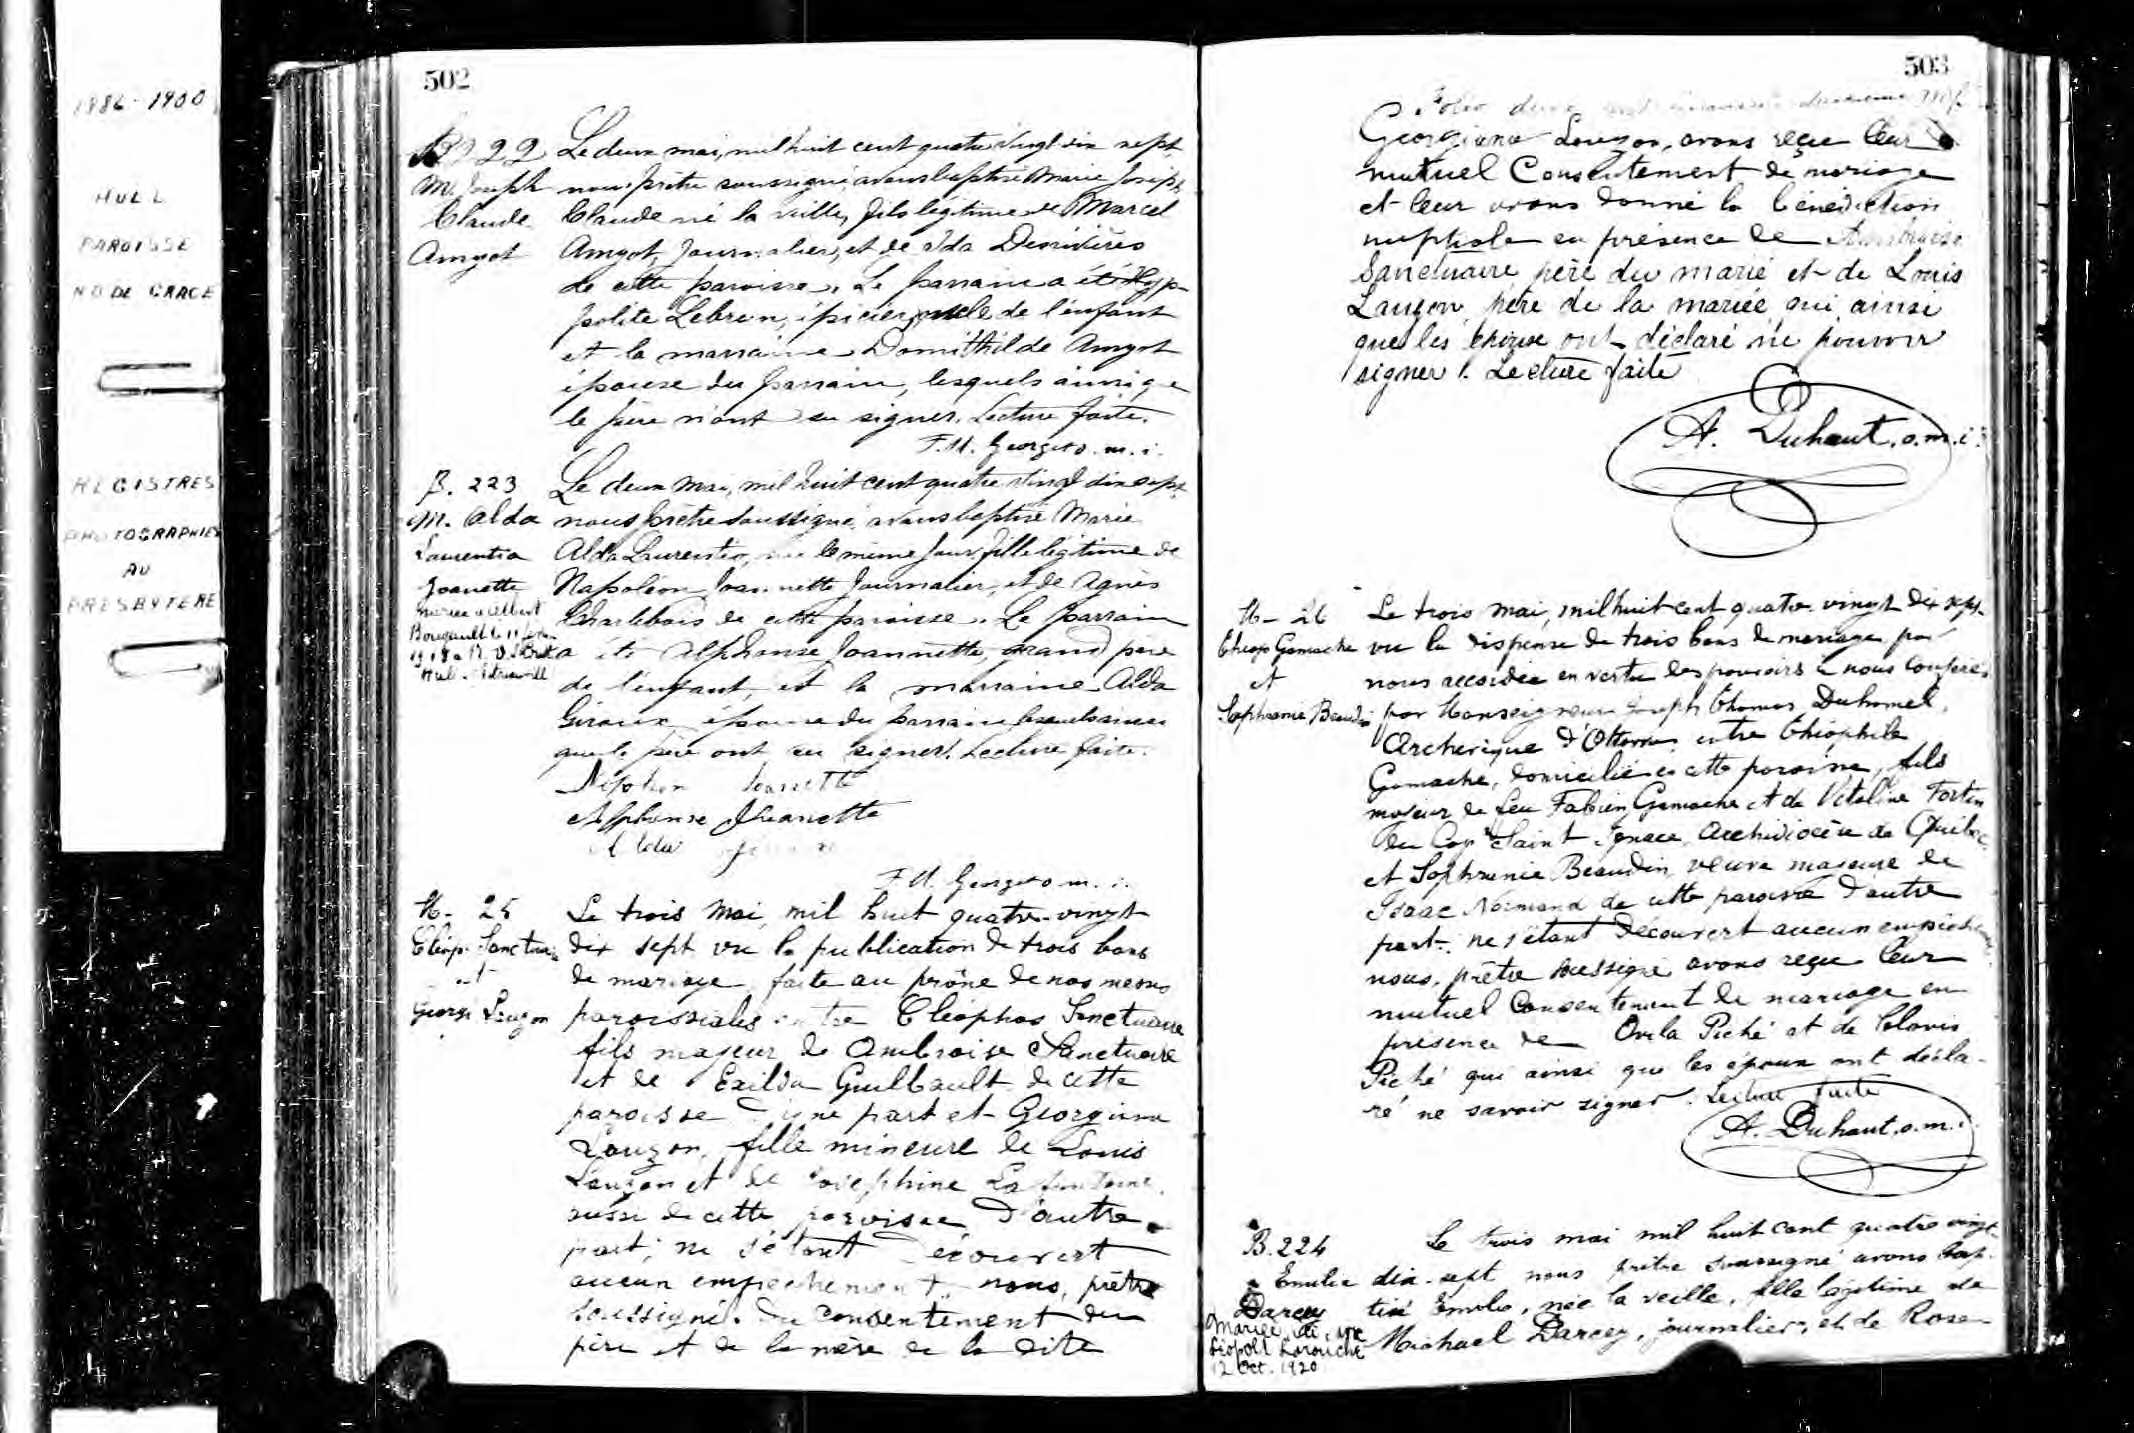 1886-1900
HULL
PAROISSE
N D DE GRACE
REGISTRES
PHOTOGRAPHIES
AU
PRESBYTERE
502
B 222
M. Joseph
Claude
Amyot
Le deux mai, mil huit cent quatre vingt dix sept,
nous prêtre soussigné, avons baptisé Marie Joseph
Claude né la veille, fils légitime de Marcel
Amyot, Journalier, et de Alda Desrivières
de cette paroisse. Le parrain a été Hyp-
polite Lebrun, épicier, oncle de l'enfant
et la marraine Domithilde Amyot
épouse du parrain, lesquels ainsi que
le père n'ont su signer. Lecture faite.
F. M. Georget o. m. i.
B. 223
M. Alda
Laurentia
Joanette
Mariée a Albert
Le deux Mai, mil huit cent quatre vingt dix sept,
nous prêtre soussigné, avons baptisé Marie
Alda Laurentia, née le même jour, fille légitime de
Napoléon Joannette Journalier, et de Agnès
Charlebois de cette paroisse. Le parrain
a été Alphonse Joannette, grand père
de l'enfant, et la marraine Alda
Giroux épouse du parrain, lesquels ainsi
que le père ont su signer. Lecture faite.
Alphonse Jeanotte
Alda
F. M. Georget o. m. i.
M- 25
Cléop. Sanctuaire
et
Georgi Lauzon
Le trois Mai, mil huit quatre-vingt
dix sept vu la publication de trois bans
de mariage faite au prône de nos messes
paroissiales entre Cléophas Sanctuaire
fils majeur de Ambroise Sanctuaire
et de Exilda Guilbault de cette
paroisse d'une part et Georgiana
Lauzon, fille mineure de Louis
Lauzon et de Josephine Lafontaine,
aussi de cette paroisse d'autre
part; ne s'étant découvert
aucun empechement, nous, prêtre
soussigné. Du consentement du
père et de la mère de la dite
503
Georgiana Lauzon, avons reçu leur
mutuel Consentement de mariage
et leur avons donné la bénédiction
nuptiale en présence de Ambroise
Sanctuaire père du marié et de Louis
Lauzon, père de la mariée qui ainsi
que les époux ont déclaré ne pouvoir
signer. Lecture faite
A. Duhaut, o. m. i.
M- 26
Théop Gamache
et
Sophronie Beaudin
Le trois mai, mil huit cent quatre-vingt dix sept.
vu la dispense de trois bans de mariage par
nous accordée en vertu des pouvoirs à nous conférés
par Monseigneur Joseph Thomas Duhamel,
Archevêque d'Ottawa, entre Théophile
Gamache, domicilié en cette paroisse, fils
majeur de feu Fabien Gamache et de Vitaline Fortin
du Cap Saint Ignace, Archidiocèse de Québec
et Sophronie Beaudin, veuve majeure de
Isaac Normand de cette paroisse d'autre
part; ne s'étant découvert aucun empêchement,
nous, prêtre soussigné avons reçu leur
mutuel Consentement de mariage en
présence de Ovila Piché et de Clovis
Piché qui ainsi que les époux ont décla-
ré ne savoir signer. Lecture faite
A. Duhaut, o. m. i.
B. 224
Emilie
Darcey
Mariée
Léopold Larouche
12 Oct. 1920
Le trois mai mil huit cent quatre vingt-
dix-sept nous prêtre soussigné avons bap-
tisé Emilie, née la veille, fille légitime de
Michael Darcey, journalier, et de Rose